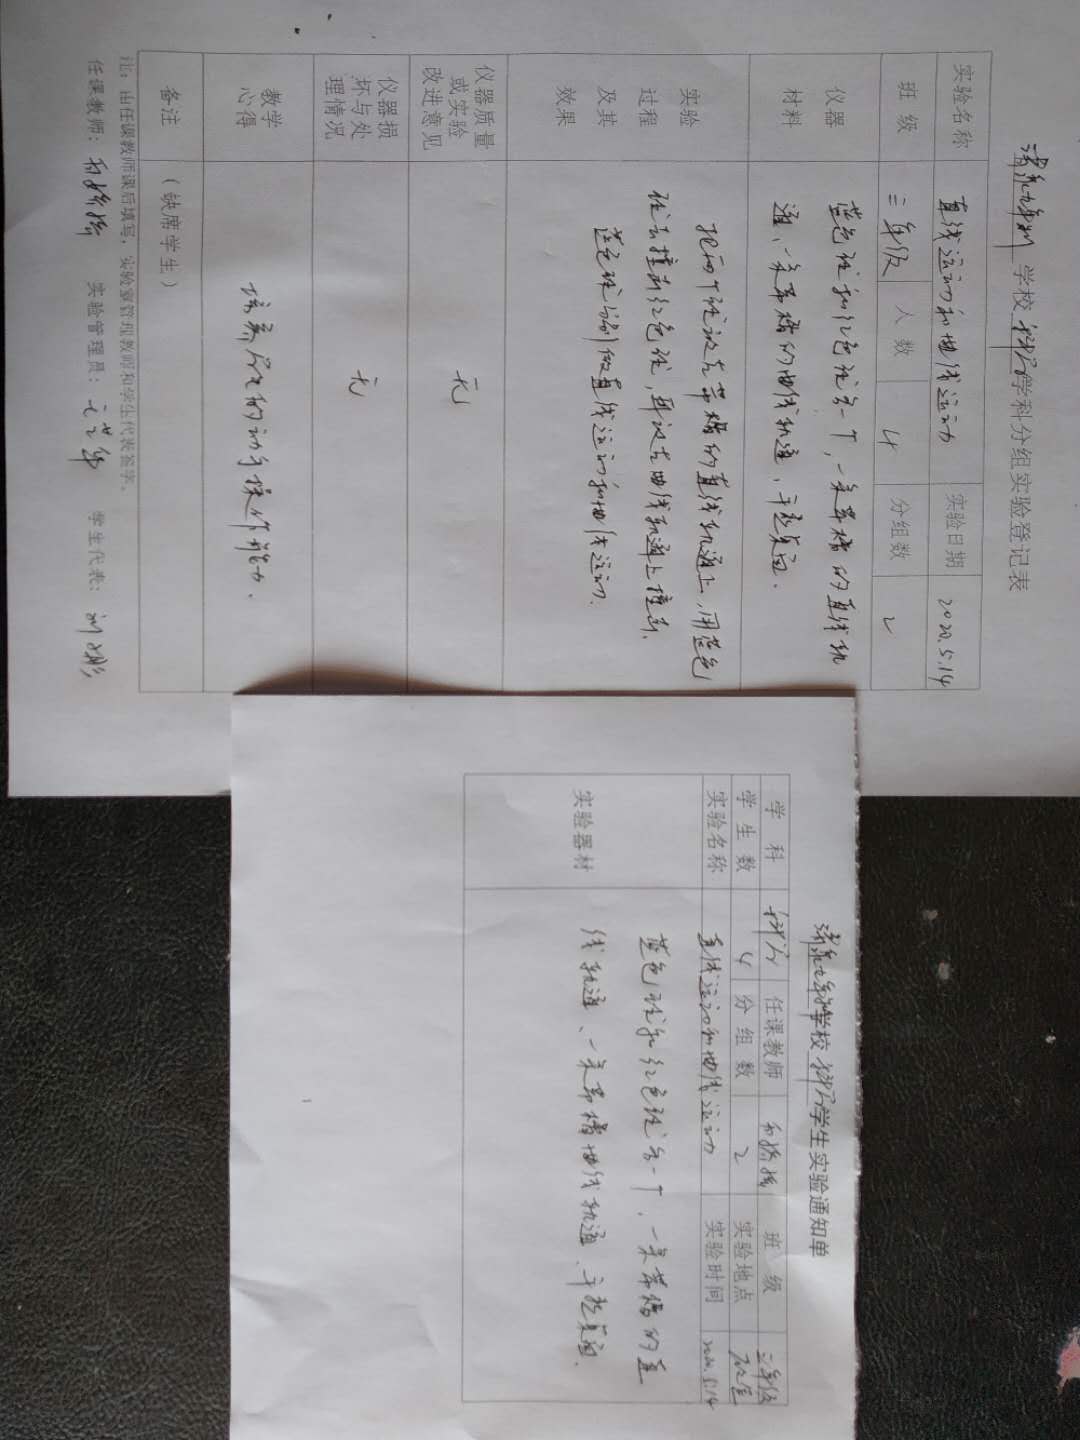 九年制学校科学学科分组实验登记表
实验名称 直线运动和曲线运动 实验日期 2020.5.14
班级 三年级 人数 4 分组数 2
仪器材料 蓝色球和红色球各一个,一条带槽的直线轨
道、一条带槽的曲线轨道、平整桌面.
实验过程及其效果 把两个球放在带槽的直线轨道上,用蓝色
球去撞击红色球,再放在曲线轨道上撞击.
蓝色球分别做直线运动和曲线运动.
仪器质量或实验改进意见 无
仪器损坏与处理情况 无
教学心得 培养学生的动手操作能力.
备注 (缺席学生)
注:由任课教师课后填写,实验室管理教师和学生代表签字。
任课教师: 实验管理员: 学生代表:
九年制学校科学学生实验通知单
学科 科学 任课教师 班级 三年级
学生数 4 分组数 2 实验地点
实验名称 直线运动和曲线运动 实验时间 2020.5.14
实验器材 蓝色球和红色球各一个,一条带槽的直
线轨道、一条带槽曲线轨道、平整桌面.